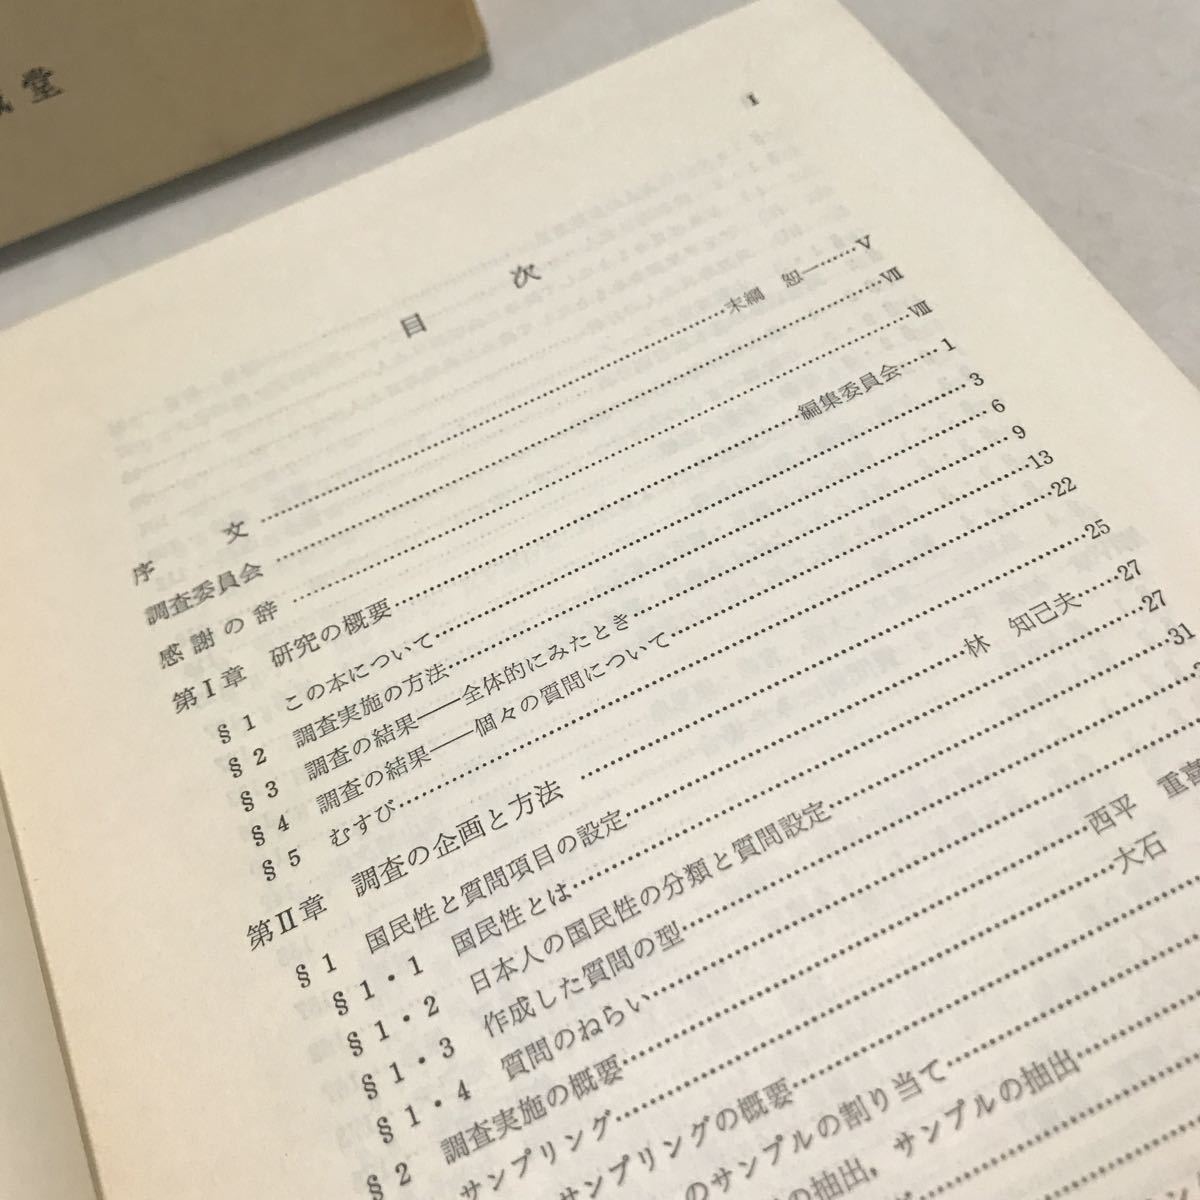 堂
I
目次
序文……末綱 恕一……V
調査委員会……VII
感謝の辞……VIII
第I章 研究の概要……編集委員会……1
§1 この本について……3
§2 調査実施の方法……6
§3 調査の結果——全体的にみたとき……9
§4 調査の結果——個々の質問について……13
§5 むすび……22
第II章 調査の企画と方法……25
§1 国民性と質問項目の設定……林 知己夫……27
§1・1 国民性とは……27
§1・2 日本人の国民性の分類と質問設定……31
§1・3 作成した質問の型……
§1・4 質問のねらい……
§2 調査実施の概要……西平 重喜
サンプリング……大石
サンプリングの概要……
のサンプルの割り当て……
の抽出，サンプルの抽出……